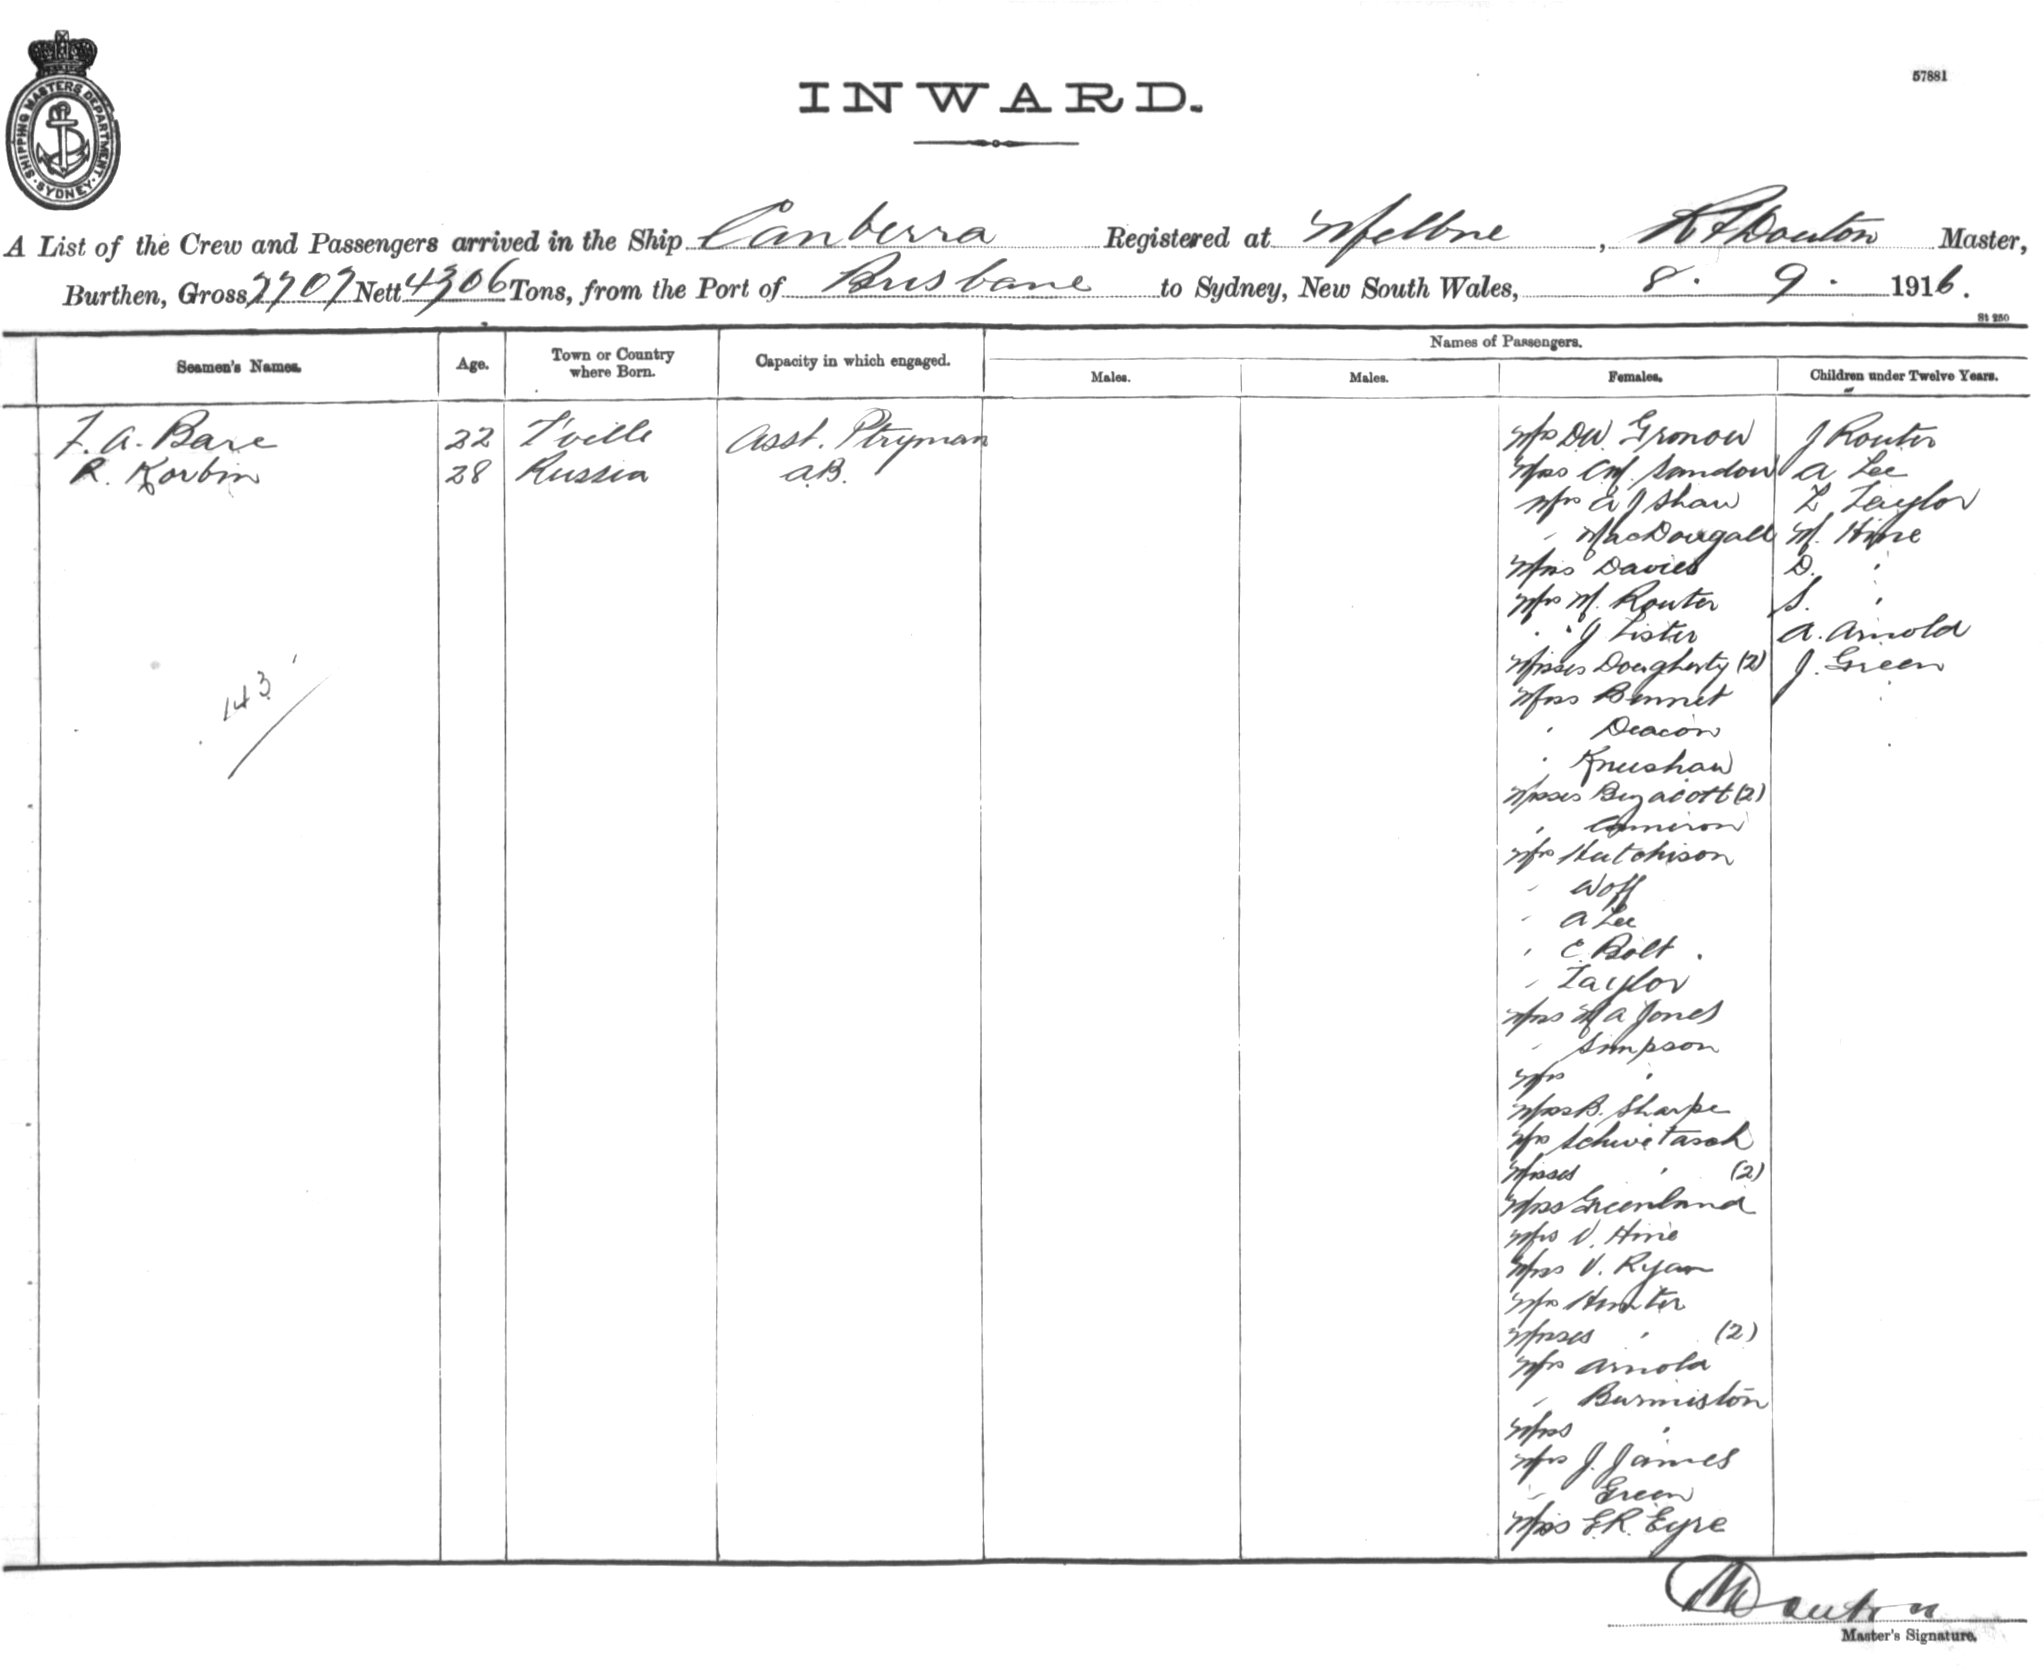 SHIPPING MASTERS DEPARTMENT. SYDNEY.
57881
INWARD.
A List of the Crew and Passengers arrived in the Ship Canberra Registered at Melbne, Douton Master,
Burthen, Gross 7707 Nett 4306 Tons, from the Port of Brisbane to Sydney, New South Wales, 8. 9. 1916.
St 250
Names of Passengers.
Seamen's Names. Age. Town or Country where Born. Capacity in which engaged. Males. Males. Females. Children under Twelve Years.
F. A. Bare 22 T'ville Asst. Ptryman Mrs DW. Gronow J Router
R. Korbin 28 Russia A.B. Miss Sandow A Lee
Mrs A J Shaw L Taylor
" MacDougall M. Hine
Miss Davies D. "
Mrs M. Router S. "
" J Lister A. Arnold
Misses Dougherty (2) J. Green
Miss Bennet
" Deacon
" Kneeshaw
Misses Bezacott (2)
" Cameron
Mrs Hutchison
" Woff
" A Lee
" E Bolt
" Taylor
Miss M A Jones
" Simpson
Mrs "
Miss B. Sharpe
Mrs Schwetasch
Misses " (2)
Miss Greenland
Mrs V. Hine
Miss V. Ryan
Mrs Hunter
Misses " (2)
Mrs Arnold
" Burmiston
Miss "
Mrs J. James
" Green
Miss E.R. Eyre
143
Douton
Master's Signature.